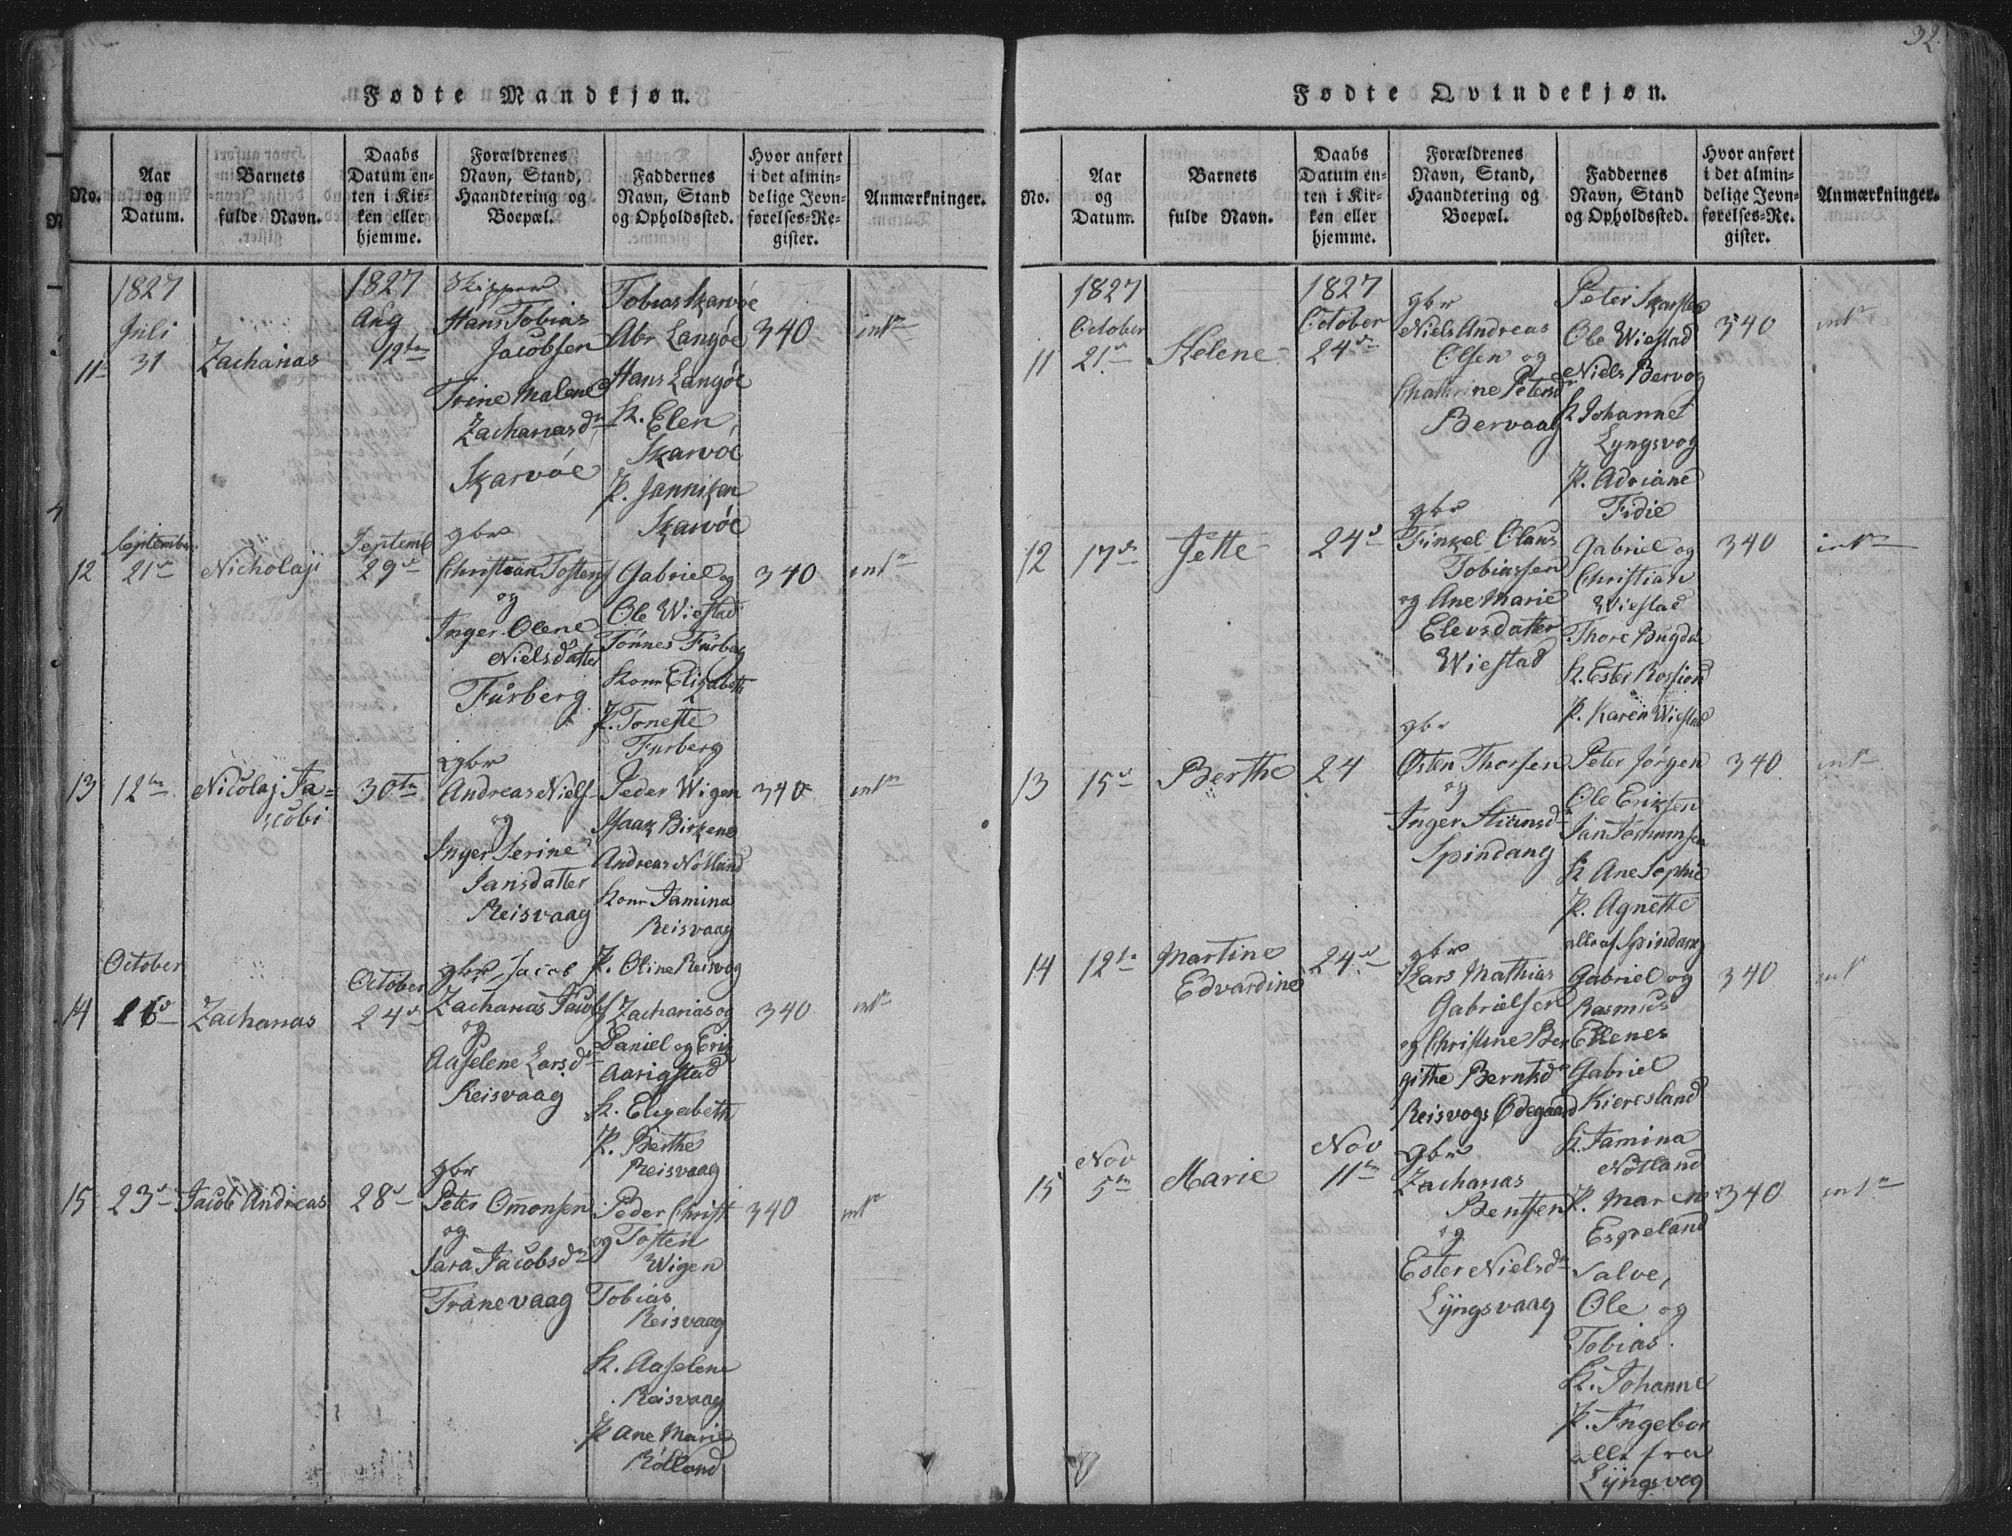 32.
Fødte Mandkjøn.
No.
Aar og Datum.
Barnets fulde Navn.
Daabs Datum enten i Kirken eller hjemme.
Forældrenes Navn, Stand, Haandtering og Boepæl.
Faddernes Navn, Stand og Opholdssted.
Hvor anført i det almindelige Jevnførelses-Register.
Anmærkninger.
1827
Juli
11 31
Zacharias
1827
Aug
12te
Skipper
Hans Tobias
Jacobsen
Trine Malene
Zachariasdr
Skarvöe
Tobias Skarvöe
Abr Langöe
Hans Langöe
K. Elen
Skarvöe
P. Janniken
Skarvöe
340
intn
September
12 21d
Nicholaji
Septemb
29de
gbr
Christian Tostens
og
Inger Olene
Nielsdatter
Fürberg
Gabriel og
Ole Wiestad
Tönnes Fürberg
Kone Elisabeth
P. Tonette
Furberg
340
intn
13 12te
Nicolaj Ja=
cobi
30te
gbr
Andreas Niels
og
Inger Serine
Jansdatter
Reisvaag
Peder Wigen
Isaak Birkene
Andreas Nötland
Kone Jamina
Reisvaag
P. Oline Reisvog
340
intn
October
14 16d
Zacharias
October
24d
gbr Jacob
Zacharias Jacobs
og
Aaselene Larsdr
Reisvaag
Zacharias og
Daniel og Erik
Aarigstad
K. Elisabeth
P. Berthe
Reisvaag
340
intn
15 23d
Jacob Andreas
28d
gbr
Peter Omonsen
og
Sara Jacobsdr
Tranevaag
Peder Christ
og Tosten
Wigen
Tobias
Reisvaag
K. Aaselene
Reisvaag
P Ane Marie
Rölland
340
intn
Fødte Qvindekjøn.
No.
Aar og Datum.
Barnets fulde Navn.
Daabs Datum enten i Kirken eller hjemme.
Forældrenes Navn, Stand, Haandtering og Boepæl.
Faddernes Navn, Stand og Opholdssted.
Hvor anført i det almindelige Jevnførelses-Register.
Anmærkninger.
1827
October
11 21d
Helene
1827
October
24d
gbr
Niels Andreas
Olsen og
Chathrine Petersdr
Bervaag
Peter Skarstad
Ole Wiestad
Niels Bervog
K Johanne
Lyngsvog
P. Adriane
Fidie
340
intn
12 17de
Jette
24d
gbr
Tinkel Olaus
Tobiassen
og Ane Marie
Elevsdatter
Wiestad
Gabriel og
Christian
Wiestad
Thore Bugdal
K. Ester Rossiord
P. Karen Wiestad
340
intn
13 15d
Berthe
24
gbr
Østen Thorsen
og
Inger
Spindang
Peter Jörgen
Ole Eriksen
Jan
K Ane Sophie
P. Agnette
alle af Spindang
340
intn
14 12te
Martine
Edvardine
24d
gbr
Lars Mathias
Gabrielsen
og Christine Ber
githe Berntsdr
Reisvogs Ödegaard
Gabriel og
Rasmus
Ellenes
Gabriel
Kieresland
K Jamina
Nötland
P. Maren
Espeland
340
intn
Nov
15 5te
Marie
Nov
11te
gbr
Zacharias
Bentsen
og
Ester Nielsdr
Lyngsvaag
Salve,
Ole og
Tobias.
K. Johanne
P. Ingebor
alle fra
Lyngsvog
340
intn